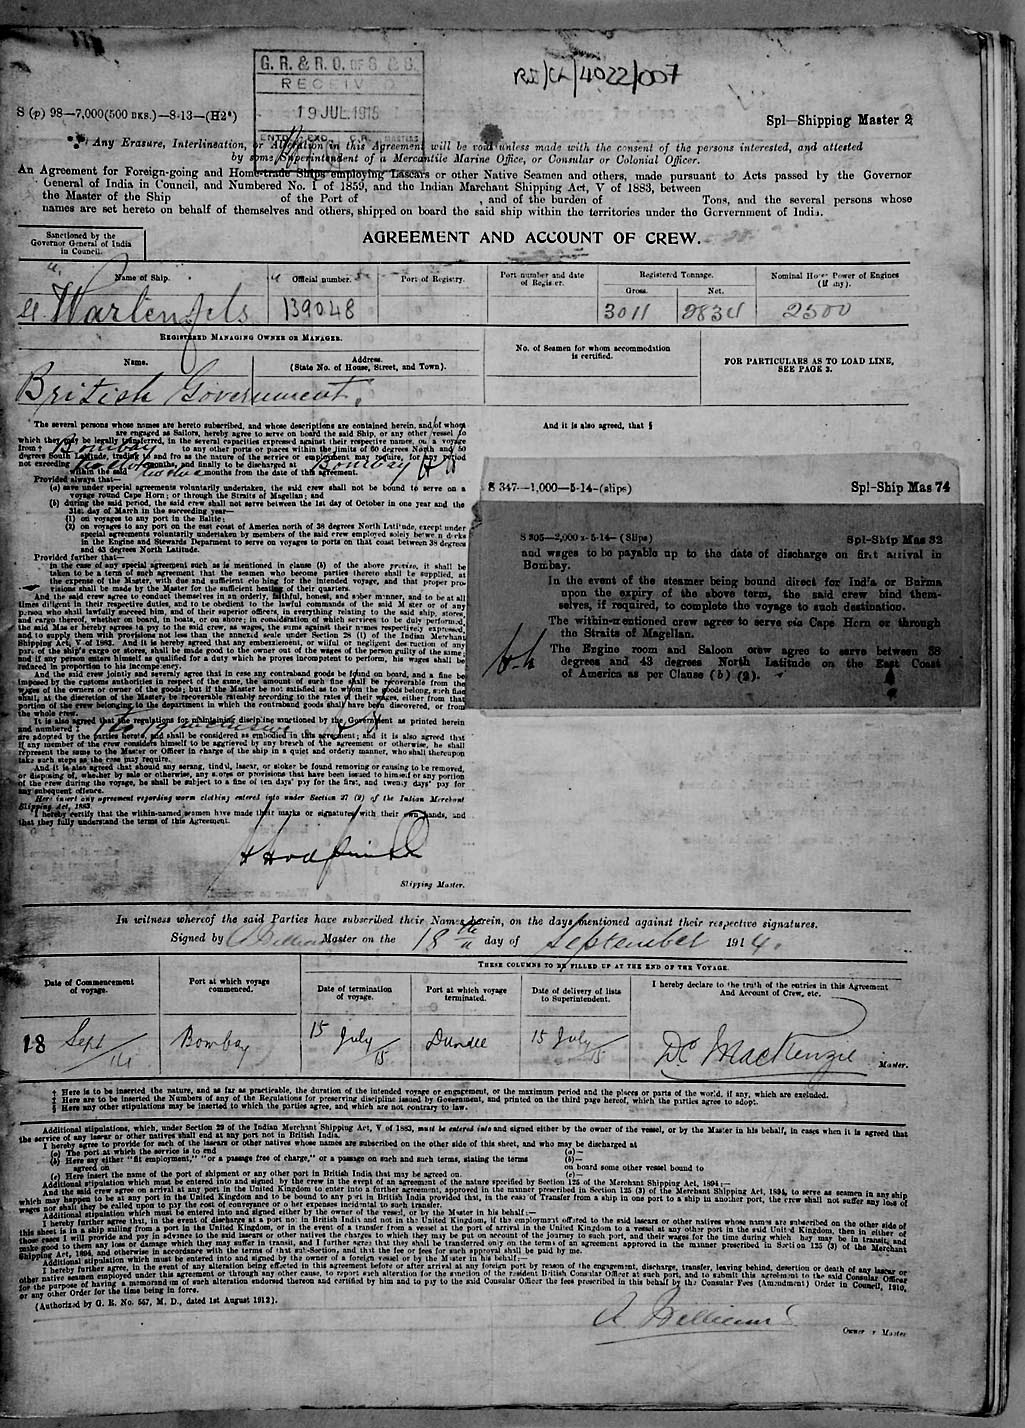 G. R. & R. O. OF S. & S.
RECEIVED
19 JUL. 1915
RS/CL/4022/007
S (p) 98—7,000(500 BKS.)—8-13—(H2*)
Spl—Shipping Master 2
Any Erasure, Interlineation, or Alteration in this Agreement will be void unless made with the consent of the persons interested, and attested
by some Superintendent of a Mercantile Marine Office, or Consular or Colonial Officer.
An Agreement for Foreign-going and Home-trade Ships employing Lascars or other Native Seamen and others, made pursuant to Acts passed by the Governor
General of India in Council, and Numbered No. I of 1859, and the Indian Marchant Shipping Act, V of 1883, between
the Master of the Ship of the Port of , and of the burden of Tons, and the several persons whose
names are set hereto on behalf of themselves and others, shipped on board the said ship within the territories under the Gorvernment of India.
Sanctioned by the
Governor General of India
in Council.
AGREEMENT AND ACCOUNT OF CREW.
Name of Ship.
Official number.
Port of Registry.
Port number and date
of Register.
Registered Tonnage.
Gross.
Net.
Nominal Horse Power of Engines
(if any).
Wartenfels
139048
3011
2834
2500
REGISTERED MANAGING OWNER OR MANAGER.
Name.
Address.
(State No. of House, Street, and Town).
No. of Seamen for whom accommodation
is certified.
FOR PARTICULARS AS TO LOAD LINE,
SEE PAGE 3.
British Government.
The several persons whose names are hereto subscribed, and whose descriptions are contained herein, and of whom
are engaged as Sailors, hereby agree to serve on board the said Ship, or any other vessel to
which they may be legally transferred, in the several capacities expressed against their respective names, on a voyage
from † Bombay to any other ports or places within the limits of 60 degrees North and 50
degrees South Latitude, trading to and fro as the nature of the service or employment may require, for any period
not exceeding months, and finally to be discharged at Bombay
within the said twelve months from the date of this agreement.
Provided always that—
(a) save under special agreements voluntarily undertaken, the said crew shall not be bound to serve on a
voyage round Cape Horn; or through the Straits of Magellan; and
(b) during the said period, the said crew shall not serve between the 1st day of October in one year and the
31st day of March in the succeeding year—
(1) on voyages to any port in the Baltic;
(2) on voyages to any port on the east coast of America north of 38 degrees North Latitude, except under
special agreements voluntarily undertaken by members of the said crew employed solely between decks
in the Engine and Stewards Deparment to serve on voyages to ports on that coast between 38 degrees
and 43 degrees North Latitude.
Provided further that—
in the case of any special agreement such as is mentioned in clause (b) of the above proviso, it shall be
taken to be a term of such agreement that the seamen who become parties thereto shall be supplied, at
the expense of the Master, with due and sufficient clothing for the intended voyage, and that proper pro-
visions shall be made by the Master for the sufficient heating of their quarters.
And the said crew agree to conduct themselves in an orderly, faithful, honest, and sober manner, and to be at all
times diligent in their respective duties, and to be obedient to the lawful commands of the said Master or of any
person who shall lawfully succeed him, and of their superior officers, in everything relating to the said ship, stores,
and cargo thereof, whether on board, in boats, or on shore; in consideration of which services to be duly performed,
the said Master hereby agrees to pay to the said crew, as wages, the sums against their names respectively expressed,
and to supply them with provisions not less than the annexed scale under Section 28 (1) of the Indian Merchant
Shipping Act, V of 1883. And it is hereby agreed that any embezzlement, or wilful or negligent destruction of any
part of the ship's cargo or stores, shall be made good to the owner out of the wages of the person guilty of the same;
and if any person enters himself as qualified for a duty which he proves incompetent to perform, his wages shall be
reduced in proportion to his incompetency.
And the said crew jointly and severally agree that in case any contraband goods be found on board, and a fine be
imposed by the customs authorities in respect of the same, the amount of such fine shall be recoverable from the
wages of the owners or owner of the goods; but if the Master be not satisfied as to whom the goods belong, such fine
shall, at the discretion of the Master, be recoverable rateably according to the rates of their wages, either from that
portion of the crew belonging to the department in which the contraband goods shall have been discovered, or from
the whole crew.
It is also agreed that the regulations for maintaining discipline sanctioned by the Government as printed herein
and numbered ‡
are adopted by the parties hereto, and shall be considered as embodied in this agreement; and it is also agreed that
if any member of the crew considers himself to be aggrieved by any breach of the agreement or otherwise, he shall
represent the same to the Master or Officer in charge of the ship in a quiet and orderly manner, who shall thereupon
take such steps as the case may require.
And it is also agreed that should any serang, tindal, lascar, or stoker be found removing or causing to be removed,
or disposing of, whether by sale or otherwise, any stores or provisions that have been issued to himself or any portion
of the crew during the voyage, he shall be subject to a fine of ten days' pay for the first, and twenty days' pay for
any subsequent offence.
Here insert any agreement regarding warm clothing entered into under Section 27 (2) of the Indian Merchant
Shipping Act, 1883
I hereby certify that the within-named seamen have made their marks or signatures with their own hands, and
that they fully understand the terms of this Agreement.
Shipping Master.
And it is also agreed, that §
S 347—1,000—5-14—(slips)
Spl-Ship Mas 74
S 305—2,000 x-5-14— (Slips)
Spl-Ship Mas 32
and wages to be payable up to the date of discharge on first arrival in
Bombay.
In the event of the steamer being bound direct for India or Burma
upon the expiry of the above term, the said crew bind them-
selves, if required, to complete the voyage to such destination.
The within-mentioned crew agree to serve via Cape Horn or through
the Straits of Magellan.
The Engine room and Saloon crew agree to serve between 38
degrees and 43 degrees North Latitude on the East Coast
of America as per Clause (b) (2).
In witness whereof the said Parties have subscribed their Names herein, on the days mentioned against their respective signatures.
Signed by A Williams Master on the 18th day of September 1914.
THESE COLUMNS TO BE FILLED UP AT THE END OF THE VOYAGE.
Date of Commencement
of voyage.
Port at which voyage
commenced.
Date of termination
of voyage.
Port at which voyage
terminated.
Date of delivery of lists
to Superintendent.
I hereby declare to the truth of the entries in this Agreement
And Account of Crew, etc.
18 Sept/14
Bombay
15 July/15
Dundee
15 July/15
Dc MacKenzie
Master.
† Here is to be inserted the nature, and as far as practicable, the duration of the intended voyage or engagement, or the maximum period and the places or parts of the world, if any, which are excluded.
‡ Here are to be inserted the Numbers of any of the Regulations for preserving discipline issued by Government, and printed on the third page hereof, which the parties agree to adopt.
§ Here any other stipulations may be inserted to which the parties agree, and which are not contrary to law.
Additional stipulations, which, under Section 29 of the Indian Merchant Shipping Act, V of 1883, must be entered into and signed either by the owner of the vessel, or by the Master in his behalf, in cases when it is agreed that
the service of any lascar or other natives shall end at any port not in British India.
I hereby agree to provide for each of the lascars or other natives whose names are subscribed on the other side of this sheet, and who may be discharged at
(a) The port at which the service is to end (a)—
(b) Here say either "fit employment," "or a passage free of charge," or a passage on such and such terms, stating the terms (b)—
agreed on on board some other vessel bound to
(c) Here insert the name of the port of shipment or any other port in British India that may be agreed on. (c)—
Additional stipulation which must be entered into and signed by the crew in the event of an agreement of the nature specified by Section 125 of the Merchant Shipping Act, 1894:—
And the said crew agree on arrival at any port in the United Kingdom to enter into a further agreement, approved in the manner prescribed in Section 125 (3) of the Merchant Shipping Act, 1894, to serve as seamen in any ship
which may happen to be at any port in the United Kingdom and to be bound to any port in British India provided that, in the case of Transfer from a ship in one port to a ship in another port, the crew shall not suffer any loss of
wages nor shall they be called upon to pay the cost of conveyance or other expenses incidental to such transfer.
Additional stipulation which must be entered into and signed by either the owner of the vessel, or by the Master in his behalf:—
I hereby further agree that, in the event of discharge at a port not in British India and not in the United Kingdom, if the employment offered to the said lascars or other natives whose names are subscribed on the other side of
this sheet is in a ship sailing from a port in the United Kingdom, or in the event of a transfer from a vessel at the port of arrival in the United Kingdom to a vessel at any other port in the said United Kingdom, then in either of
those cases I will provide and pay in advance to the said lascars or other natives the charges to which they may be put on account of the journey to such port, and their wages for the time during which they may be in transit, and
make good to them any loss or damage which they may suffer in transit, and I further agree that they shall be transferred only on the terms of an agreement approved in the manner prescribed in Section 125 (3) of the Merchant
Shipping Act, 1894, and otherwise in accordance with the terms of that sub-Section, and that the fee or fees for such approval shall be paid by me.
Additional stipulation which must be entered into and signed by the owner of a foreign vessel or by the Master in his behalf:—
I hereby further agree, in the event of any alteration being effected in this agreement before or after arrival at any foreign port by reason of the engagement, discharge, transfer, leaving behind, desertion or death of any lascar or
other native seaman employed under this agreement or through any other cause, to report such alteration for the sanction of the resident British Consular Officer at such port, and to submit this agreement to the said Consular Officer
for the purpose of having a memorandum of such alteration endorsed thereon and certified by him and to pay to the said Consular Officer the fees prescribed in this behalf by the Consular Fees (Amendment) Order in Council, 1910,
or any other Order for the time being in force.
(Authorized by G. R. No. 567, M. D., dated 1st August 1912).
A Williams
Owner or Master